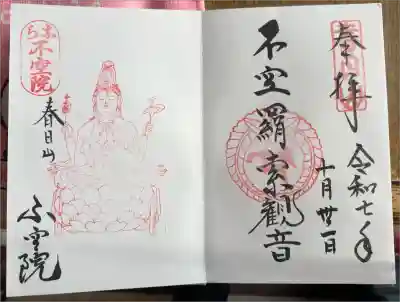 奉拝
令和七年
十月卅一日
不空羂索觀音
なら
不空院
春日山
不空院